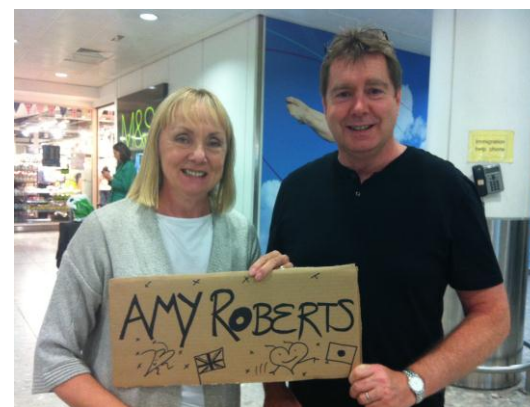 M&S
Immigration
help phone
AMY ROBERTS